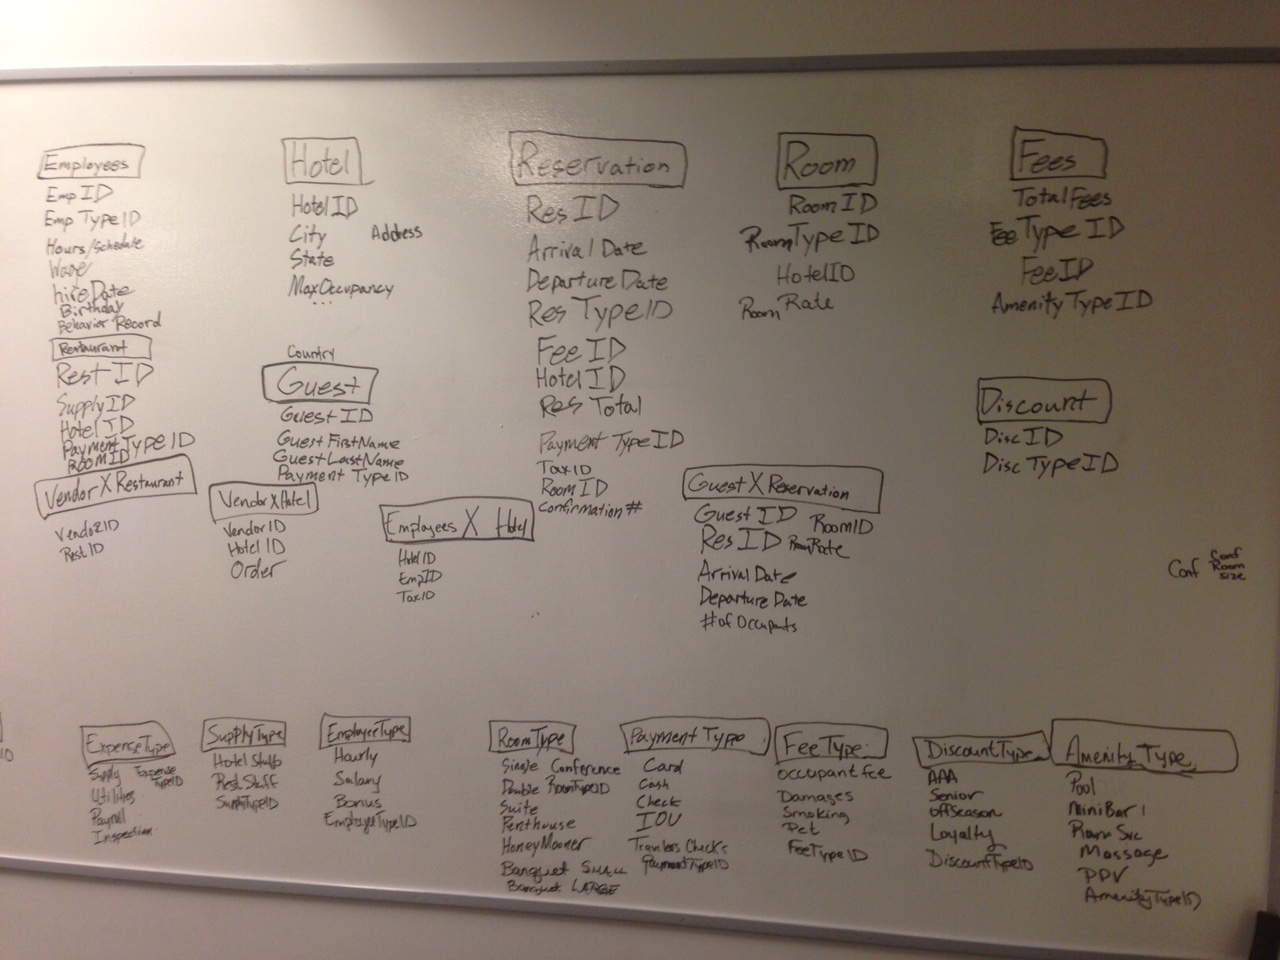 Employees
Emp ID
Emp Type ID
Hours/Schedule
Wage
hireDate
Birthday
Behavior Record
Restaurant
Rest ID
Supply ID
Hotel ID
Payment Type ID
Room ID
Vendor X Restaurant
Vendor ID
Rest ID
Hotel
Hotel ID
City Address
State
Max Occupancy
...
Country
Guest
Guest ID
Guest First Name
Guest Last Name
Payment Type ID
Vendor X Hotel
Vendor ID
Hotel ID
Order
Employees X Hotel
Hotel ID
Emp ID
Tax ID
Reservation
Res ID
Arrival Date
Departure Date
Res Type ID
Fee ID
Hotel ID
Res Total
Payment Type ID
Tax ID
Room ID
Confirmation #
Room
Room ID
Room Type ID
Hotel ID
Room Rate
Guest X Reservation
Guest ID Room ID
Res ID Room Rate
Arrival Date
Departure Date
# of Occupants
Fees
Total Fees
Fee Type ID
Fee ID
Amenity Type ID
Discount
Disc ID
Disc Type ID
Conf Conf
Room
size
ID
Expense Type
Supply Expense
Type ID
Utilities
Payroll
Inspection
Supply Type
Hotel Stuff
Rest. Stuff
Supply Type ID
Employee Type
Hourly
Salary
Bonus
Employee Type ID
Room Type
Single Conference
Double Room Type ID
Suite
Penthouse
Honey Mooner
Banquet SMALL
Banquet LARGE
Payment Type
Card
Cash
Check
IOU
Travlers Checks
Payment Type ID
Fee Type:
occupant fee
Damages
Smoking
Pet
Fee Type ID
Discount Type
AAA
Senior
offseason
Loyalty
Discount Type ID
Amenity Type
Pool
Mini Bar
Room Svc
Massage
PPV
Amenity Type ID